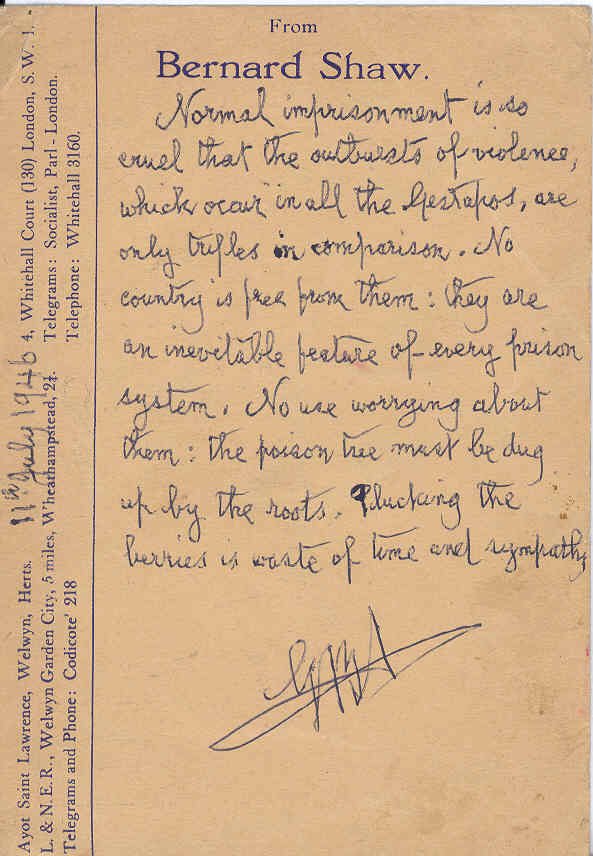 From
Bernard Shaw.
Normal imprisonment is so
cruel that the outbursts of violence,
which occur in all the Gestapos, are
only trifles in comparison. No
country is free from them: they are
an inevitable feature of every prison
system. No use worrying about
them: the poison tree must be dug
up by the roots. Plucking the
berries is waste of time and sympathy
GBS
11th July 1946
4, Whitehall Court (130) London, S.W. 1.
Telegrams: Socialist, Parl - London.
Telephone: Whitehall 3160.
Ayot Saint Lawrence, Welwyn, Herts.
L. & N.E.R., Welwyn Garden City, 5 miles, Wheathampstead, 2¼.
Telegrams and Phone: Codicote' 218